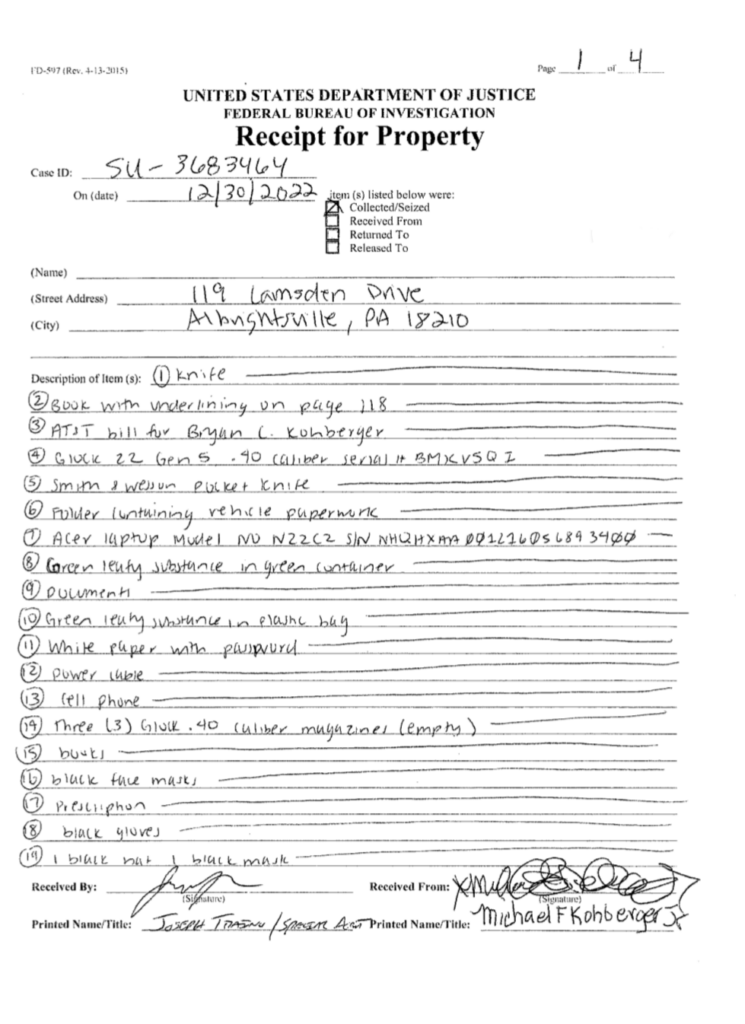 FD-597 (Rev. 4-13-2015)
Page 1 of 4
UNITED STATES DEPARTMENT OF JUSTICE
FEDERAL BUREAU OF INVESTIGATION
Receipt for Property
Case ID: SU-3683464
On (date) 12/30/2022 item (s) listed below were:
Collected/Seized
Received From
Returned To
Released To
(Name)
(Street Address) 119 Lamsden Drive
(City) Albrightsville, PA 18210
Description of Item (s): 1 Knife
2 Book with underlining on page 118
3 AT&T bill for Bryan C. Kohberger
4 Glock 22 Gen 5 .40 caliber serial # BMKV592
5 Smith & Wesson pocket knife
6 Folder containing vehicle paperwork
7 Acer laptop Model NO N22C2 S/N
8 Green leafy substance in green container
9 Documents
10 Green leafy substance in plastic bag
11 White paper with password
12 power cable
13 Cell phone
14 Three (3) Glock .40 caliber magazines (empty)
15 books
16 black face masks
17 Prescription
18 black gloves
19 1 black hat 1 black mask
Received By:
Received From:
(Signature)
(Signature)
Printed Name/Title: Joseph / Special Agent
Printed Name/Title: Michael F Kohberger Jr